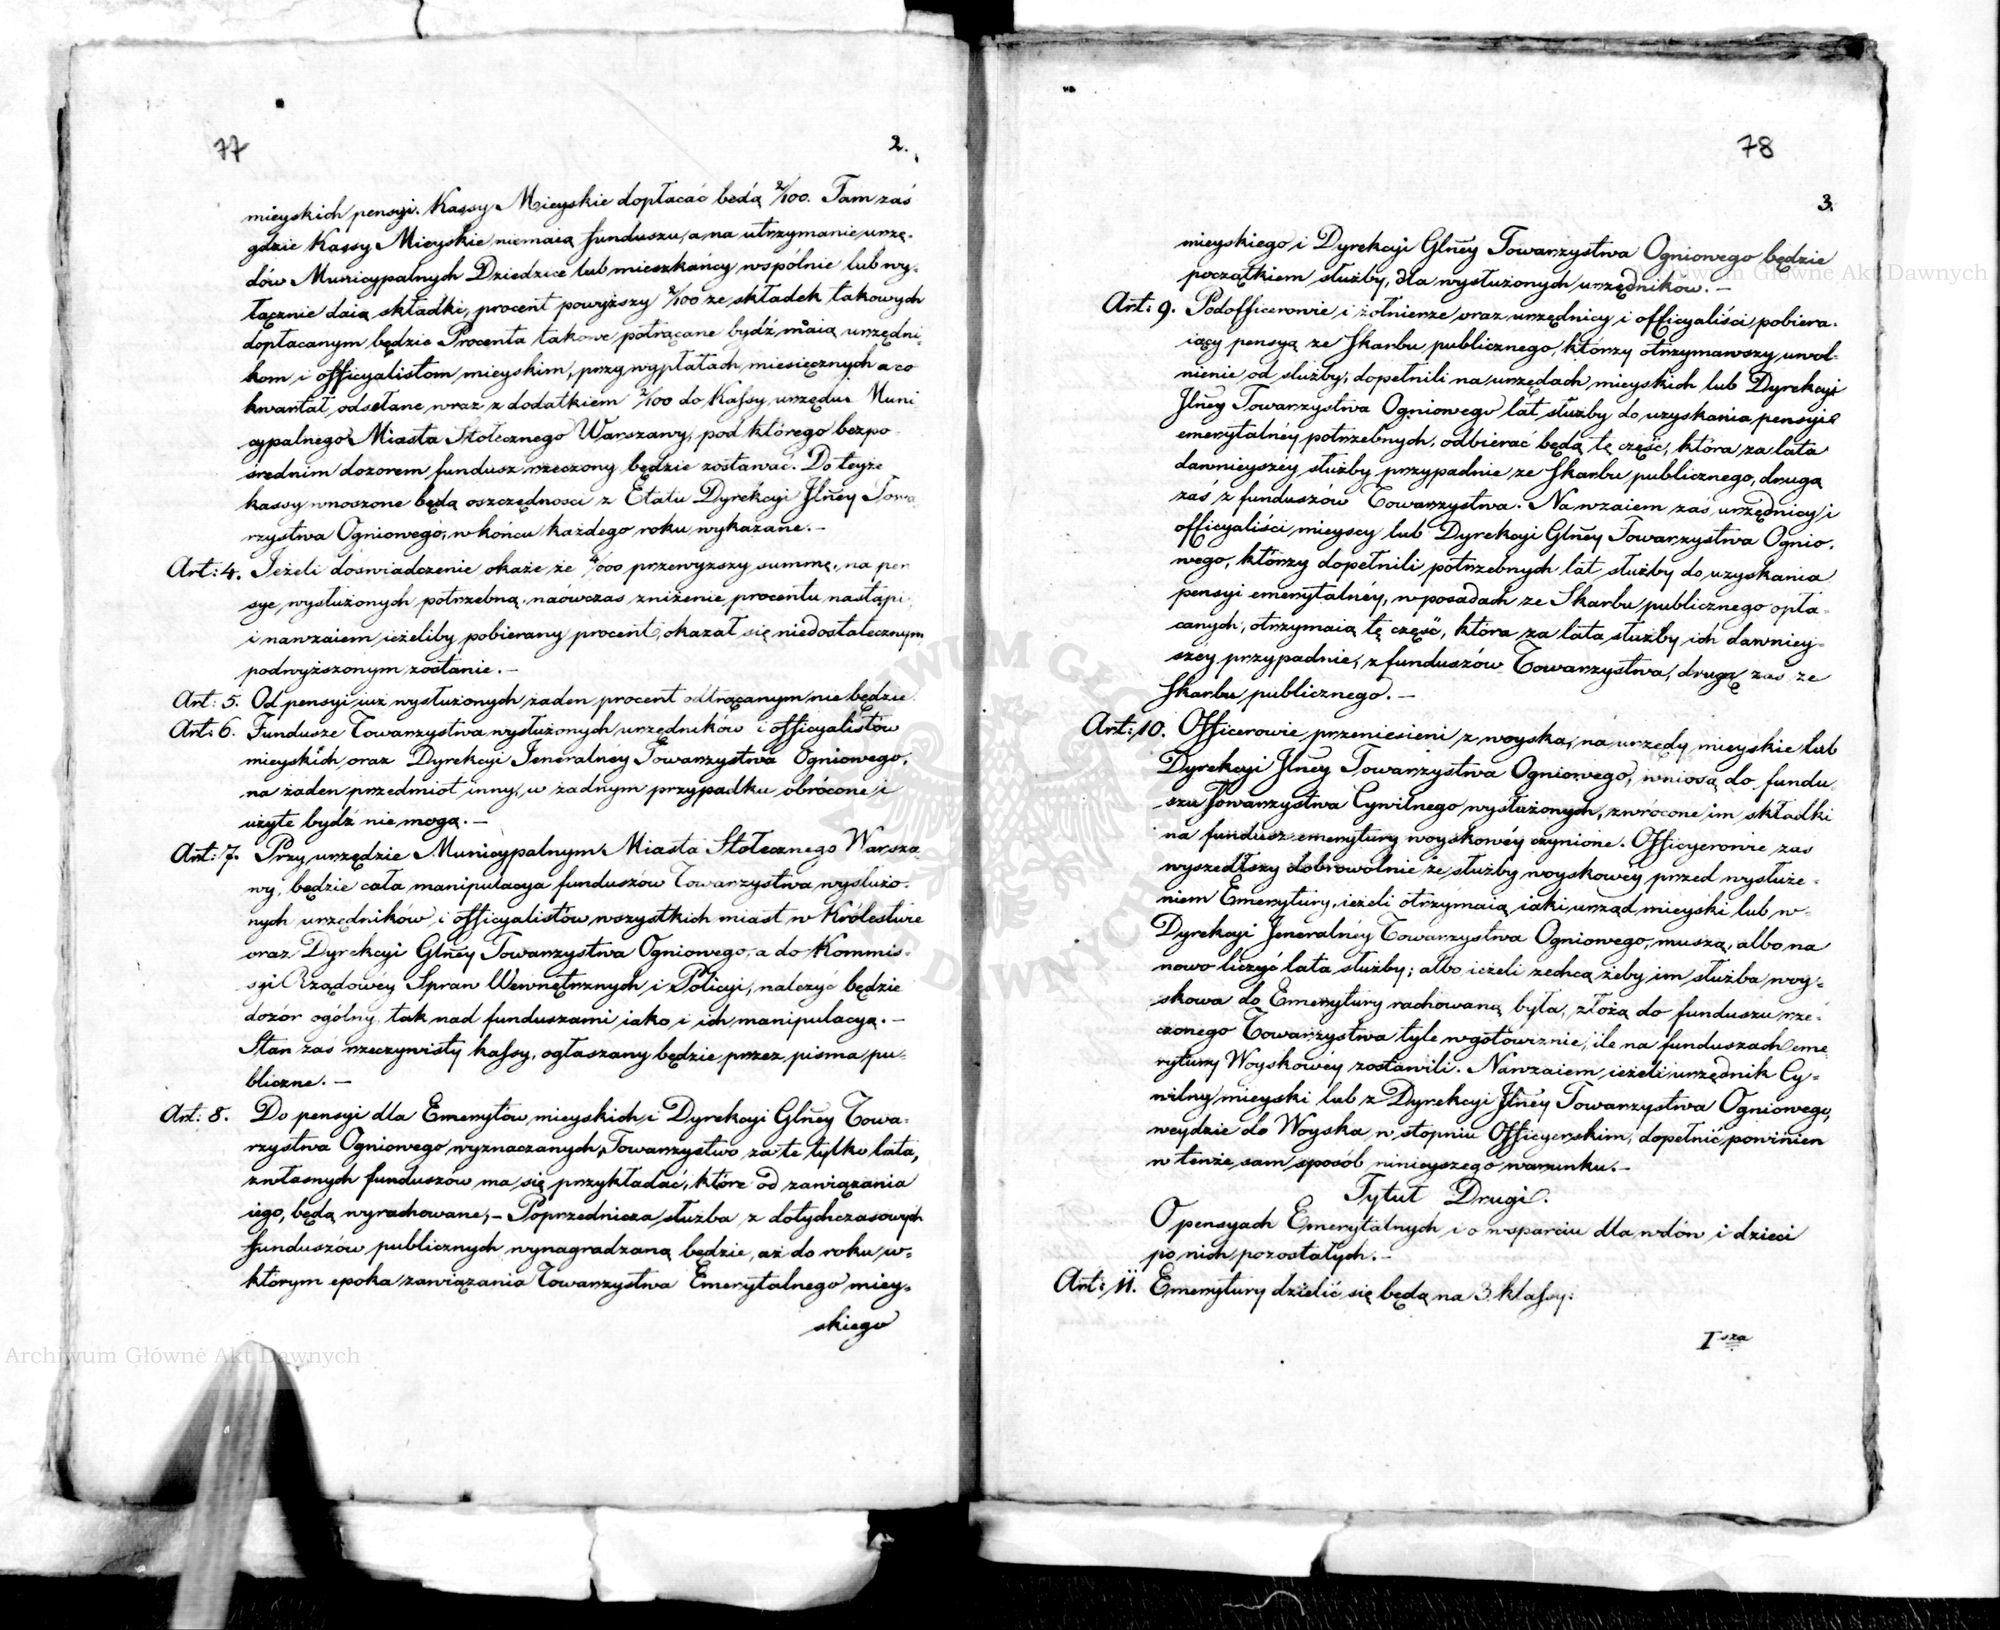 77
2.
mieyskich pensyi. Kassy Mieyskie dopłacać będą 2/100. Tam zaś
gdzie Kassy Mieyskie niemaią funduszu, a na utrzymanie urzę-
dów Municypalnych Dziedzice lub mieszkańcy wspólnie lub wy-
łącznie daią składki, procent powyższy 2/100 ze składek takowych
dopłacanym będzie Procenta takowe potrącane bydź maią urzędni-
kom i officyalistom mieyskim, przy wypłatach miesięcznych a co
kwartał odsełane wraz z dodatkiem 2/100 do Kassy urzędu Muni
cypalnego Miasta Stołecznego Warszawy, pod którego bezpo-
średnim dozorem fundusz rzeczony będzie zostawać. Do teyże
kassy wnoszone będą oszczędności z Etatu Dyrekcyi Jlney Towa
rzystwa Ogniowego, w końcu każdego roku wykazane. –
Art: 4. Jeżeli doświadczenie okaże że przewyższy summę, na pen
sye wysłużonych potrzebną, naówczas zniżenie procentu nastąpi,
i nawzaiem ieżeliby pobierany procent, okazał się niedostatecznym
podwyższonym zostanie. –
Art: 5. Od pensyi iuż wysłużonych żaden procent odtrącanym nie będzie
Art: 6. Fundusze Towarzystwa wysłużonych urzędników i officyalistów
mieyskich, oraz Dyrekcyi Jeneralnéy Towarzystwa Ogniowego,
na żaden przedmiot inny, w żadnym przypadku obrócone i
użyte bydź nie mogą. –
Art: 7. Przy urzędzie Municypalnym Miasta Stołecznego Warsza
wy, będzie cała manipulacya funduszów Towarzystwa wysłużo-
nych urzędników i officyalistów wszystkich miast w Królestwie
oraz Dyrekcyi Glnéy Towarzystwa Ogniowego, a do Kommis-
syi Rządowéy Spraw Wewnętrznych i Policyi, należyć będzie
dozór ogólny, tak nad funduszami iako i ich manipulacyą. –
Stan zaś rzeczywisty kassy, ogłaszany będzie przez pisma pu-
bliczne. –
Art: 8. Do pensyi dla Emerytów mieyskich i Dyrekcyi Glnéy Towa-
rzystwa Ogniowego wyznaczanych, Towarzystwo za te tylko lata,
z własnych funduszów ma się przykładać, które od zawiązania
iego, będą wyrachowane, – Poprzednicza służba z dotychczasowych
funduszów publicznych wynagradzaną będzie, aż do roku, w-
którym epoka zawiązania Towarzystwa Emerytalnego miey-
skiego
78
3.
mieyskiego i Dyrekcyi Glnéy Towarzystwa Ogniowego będzie
początkiem służby, dla wysłużonych urzędników. –
Art: 9. Podofficerowie i żołnierze oraz urzędnicy i officyaliści pobiera-
iący pensyą ze Skarbu publicznego, którzy otrzymawszy uwol-
nienie od służby, dopełnili na urzędach mieyskich lub Dyrekcyi
Jlnéy Towarzystwa Ogniowego lat służby do uzyskania pensyi
emerytalnéy potrzebnych, odbierać będą tę część, która za lata
dawnieyszéy służby przypadnie ze Skarbu publicznego, drugą
zaś z funduszów Towarzystwa. Nawzaiem zaś urzędnicy i
officyaliści mieyscy lub Dyrekcyi Glnéy Towarzystwa Ognio-
wego, którzy dopełnili potrzebnych lat służby do uzyskania
pensyi emerytalnéy, w posadach ze Skarbu publicznego opła-
canych, otrzymaią tę część, która za lata służby ich dawniey-
széy przypadnie, z funduszów Towarzystwa, drugą zaś ze
Skarbu publicznego. –
Art: 10. Officerowie przeniesieni z woyska, na urzędy mieyskie lub
Dyrekcyi Jlnéy Towarzystwa Ogniowego, wniosą do fundu-
szu Towarzystwa Cywilnego wysłużonych, zwrócone im składki
na fundusz emerytury woyskowéy czynione. Officyerowie zaś
wyszedłszy dobrowolnie ze służby woyskowéy przed wysłuże-
niem Emerytury, ieżeli otrzymaią iaki urząd mieyski lub w-
Dyrekcyi Jeneralnéy Towarzystwa Ogniowego, muszą, albo na
nowo liczyć lata służby; albo ieżeli zechcą żeby im służba woy-
skowa do Emerytury rachowaną była, złożą do funduszu rze-
czonego Towarzystwa tyle w gotowiznie, ile na funduszach eme
rytury Woyskowéy zostawili. Nawzaiem ieżeli urzędnik Cy-
wilny mieyski lub z Dyrekcyi Jlnéy Towarzystwa Ogniowego,
weydzie do Woyska w stopniu Officyerskim, dopełnić powinien
w tenże sam sposób ninieyszego warunku. –
Tytuł Drugi.
O pensyach Emerytalnych i o wsparciu dla wdów i dzieci
po nich pozostałych. –
Art: 11. Emerytury dzielić się będą na 3 klassy:
I sza
Archiwum Główne Akt Dawnych
Archiwum Główne Akt Dawnych
ARCHIWUM GŁÓWNE AKT DAWNYCH